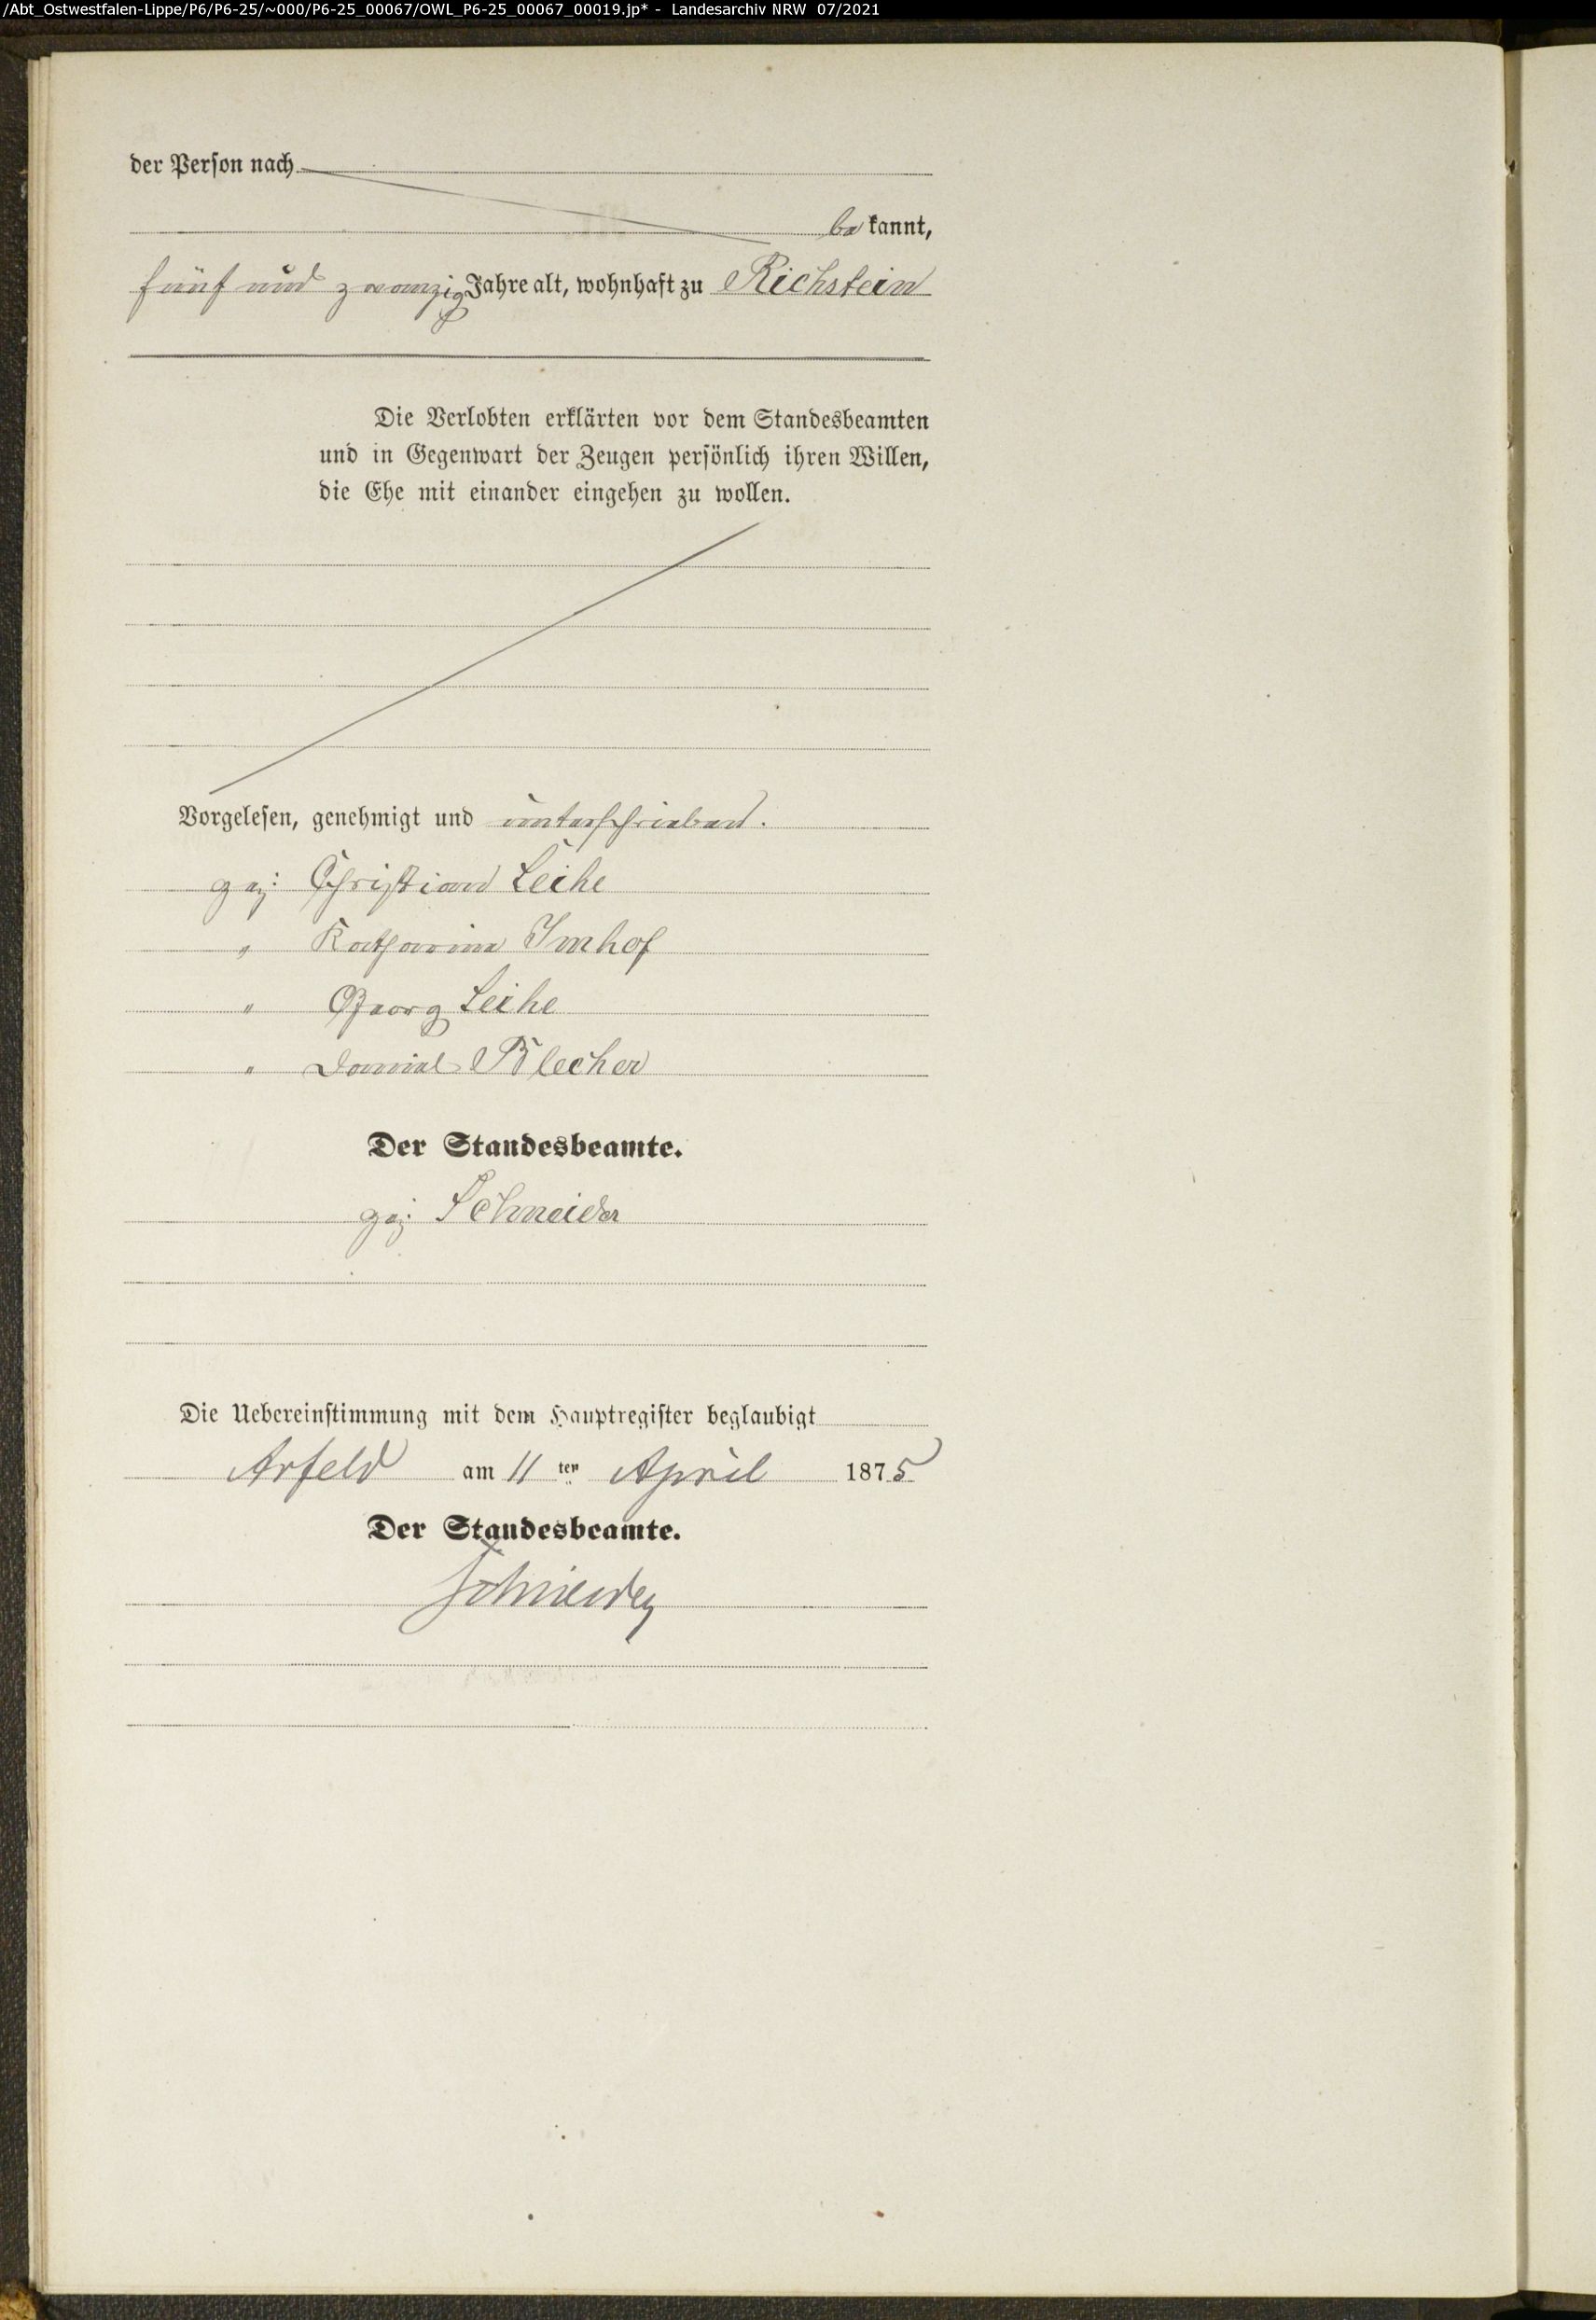 /Abt_Ostwestfalen-Lippe/P6/P6-25/~000/P6-25_00067/OWL_P6-25_00067_00019.jp* - Landesarchiv NRW 07/2021
der Person nach
be kannt,
fünf und zwanzig Jahre alt, wohnhaft zu Richstein
Die Verlobten erklärten vor dem Standesbeamten
und in Gegenwart der Zeugen persönlich ihren Willen,
die Ehe mit einander eingehen zu wollen.
Vorgelesen, genehmigt und unterschrieben.
gez: Christian Leihe
" Katharina Imhof
" Georg Leihe
" Daniel Blecher
Der Standesbeamte.
gez: Schneider
Die Uebereinstimmung mit dem Hauptregister beglaubigt
Arfeld am 11 ten April 1875
Der Standesbeamte.
Schneider